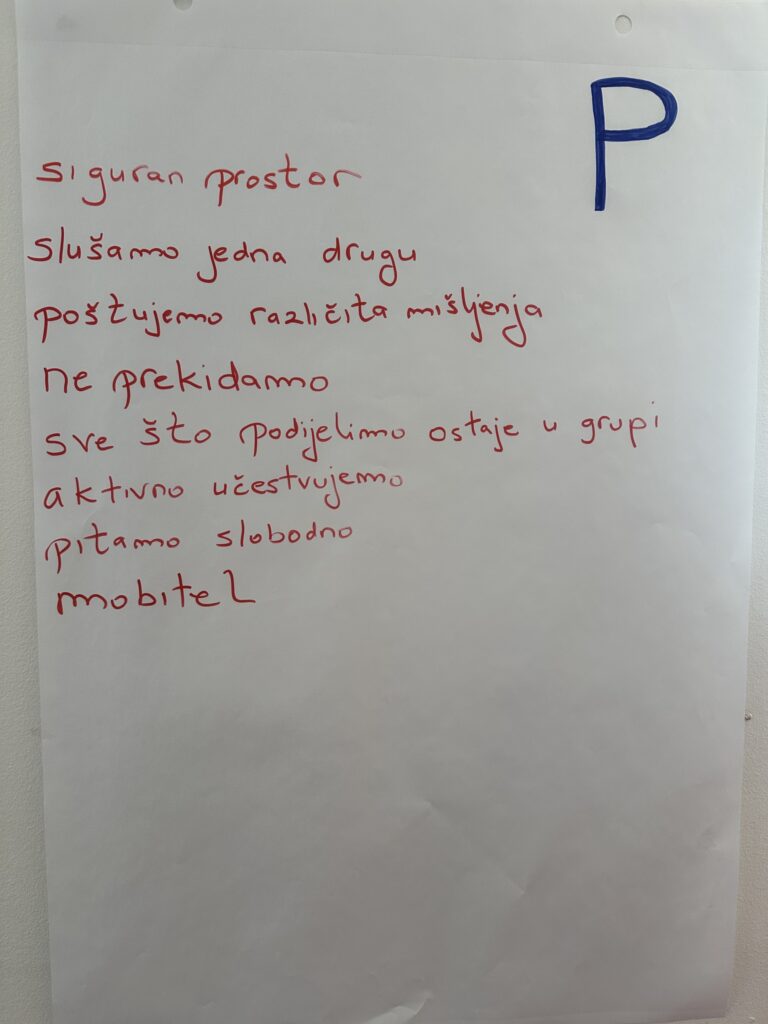 P
siguran prostor
slušamo jedna drugu
poštujemo različita mišljenja
ne prekidamo
sve što podijelimo ostaje u grupi
aktivno učestvujemo
pitamo slobodno
mobitel